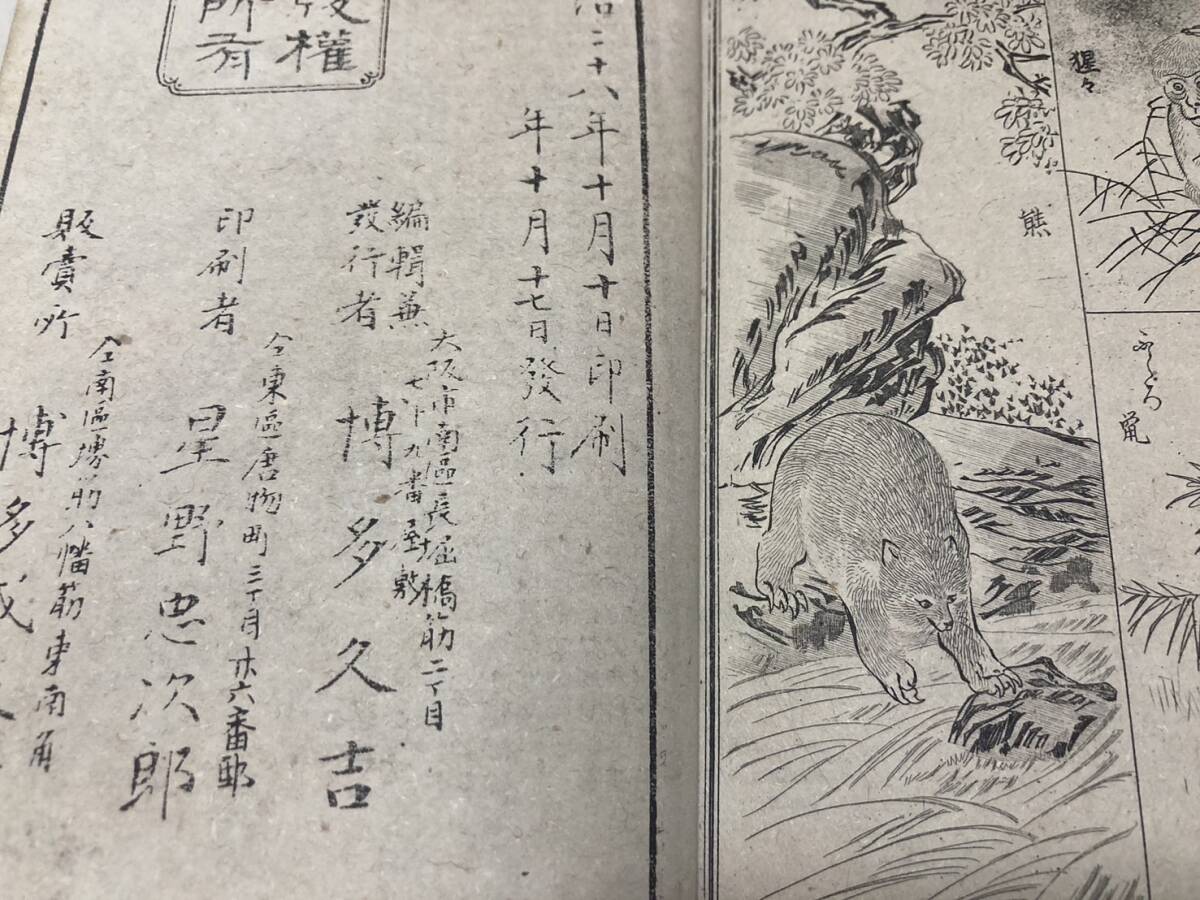 猩々
熊
むぐろ
鼠
版權
所有
治二十八年十月十日印刷
年十月十七日發行
編輯兼
發行者
大阪市南區長堀橋筋二丁目
七十九番屋敷
博多久吉
印刷者
仝東區唐物町三丁目廿六番邸
星野忠次郎
販賣所
仝南區堺筋八幡筋東南角
博多成